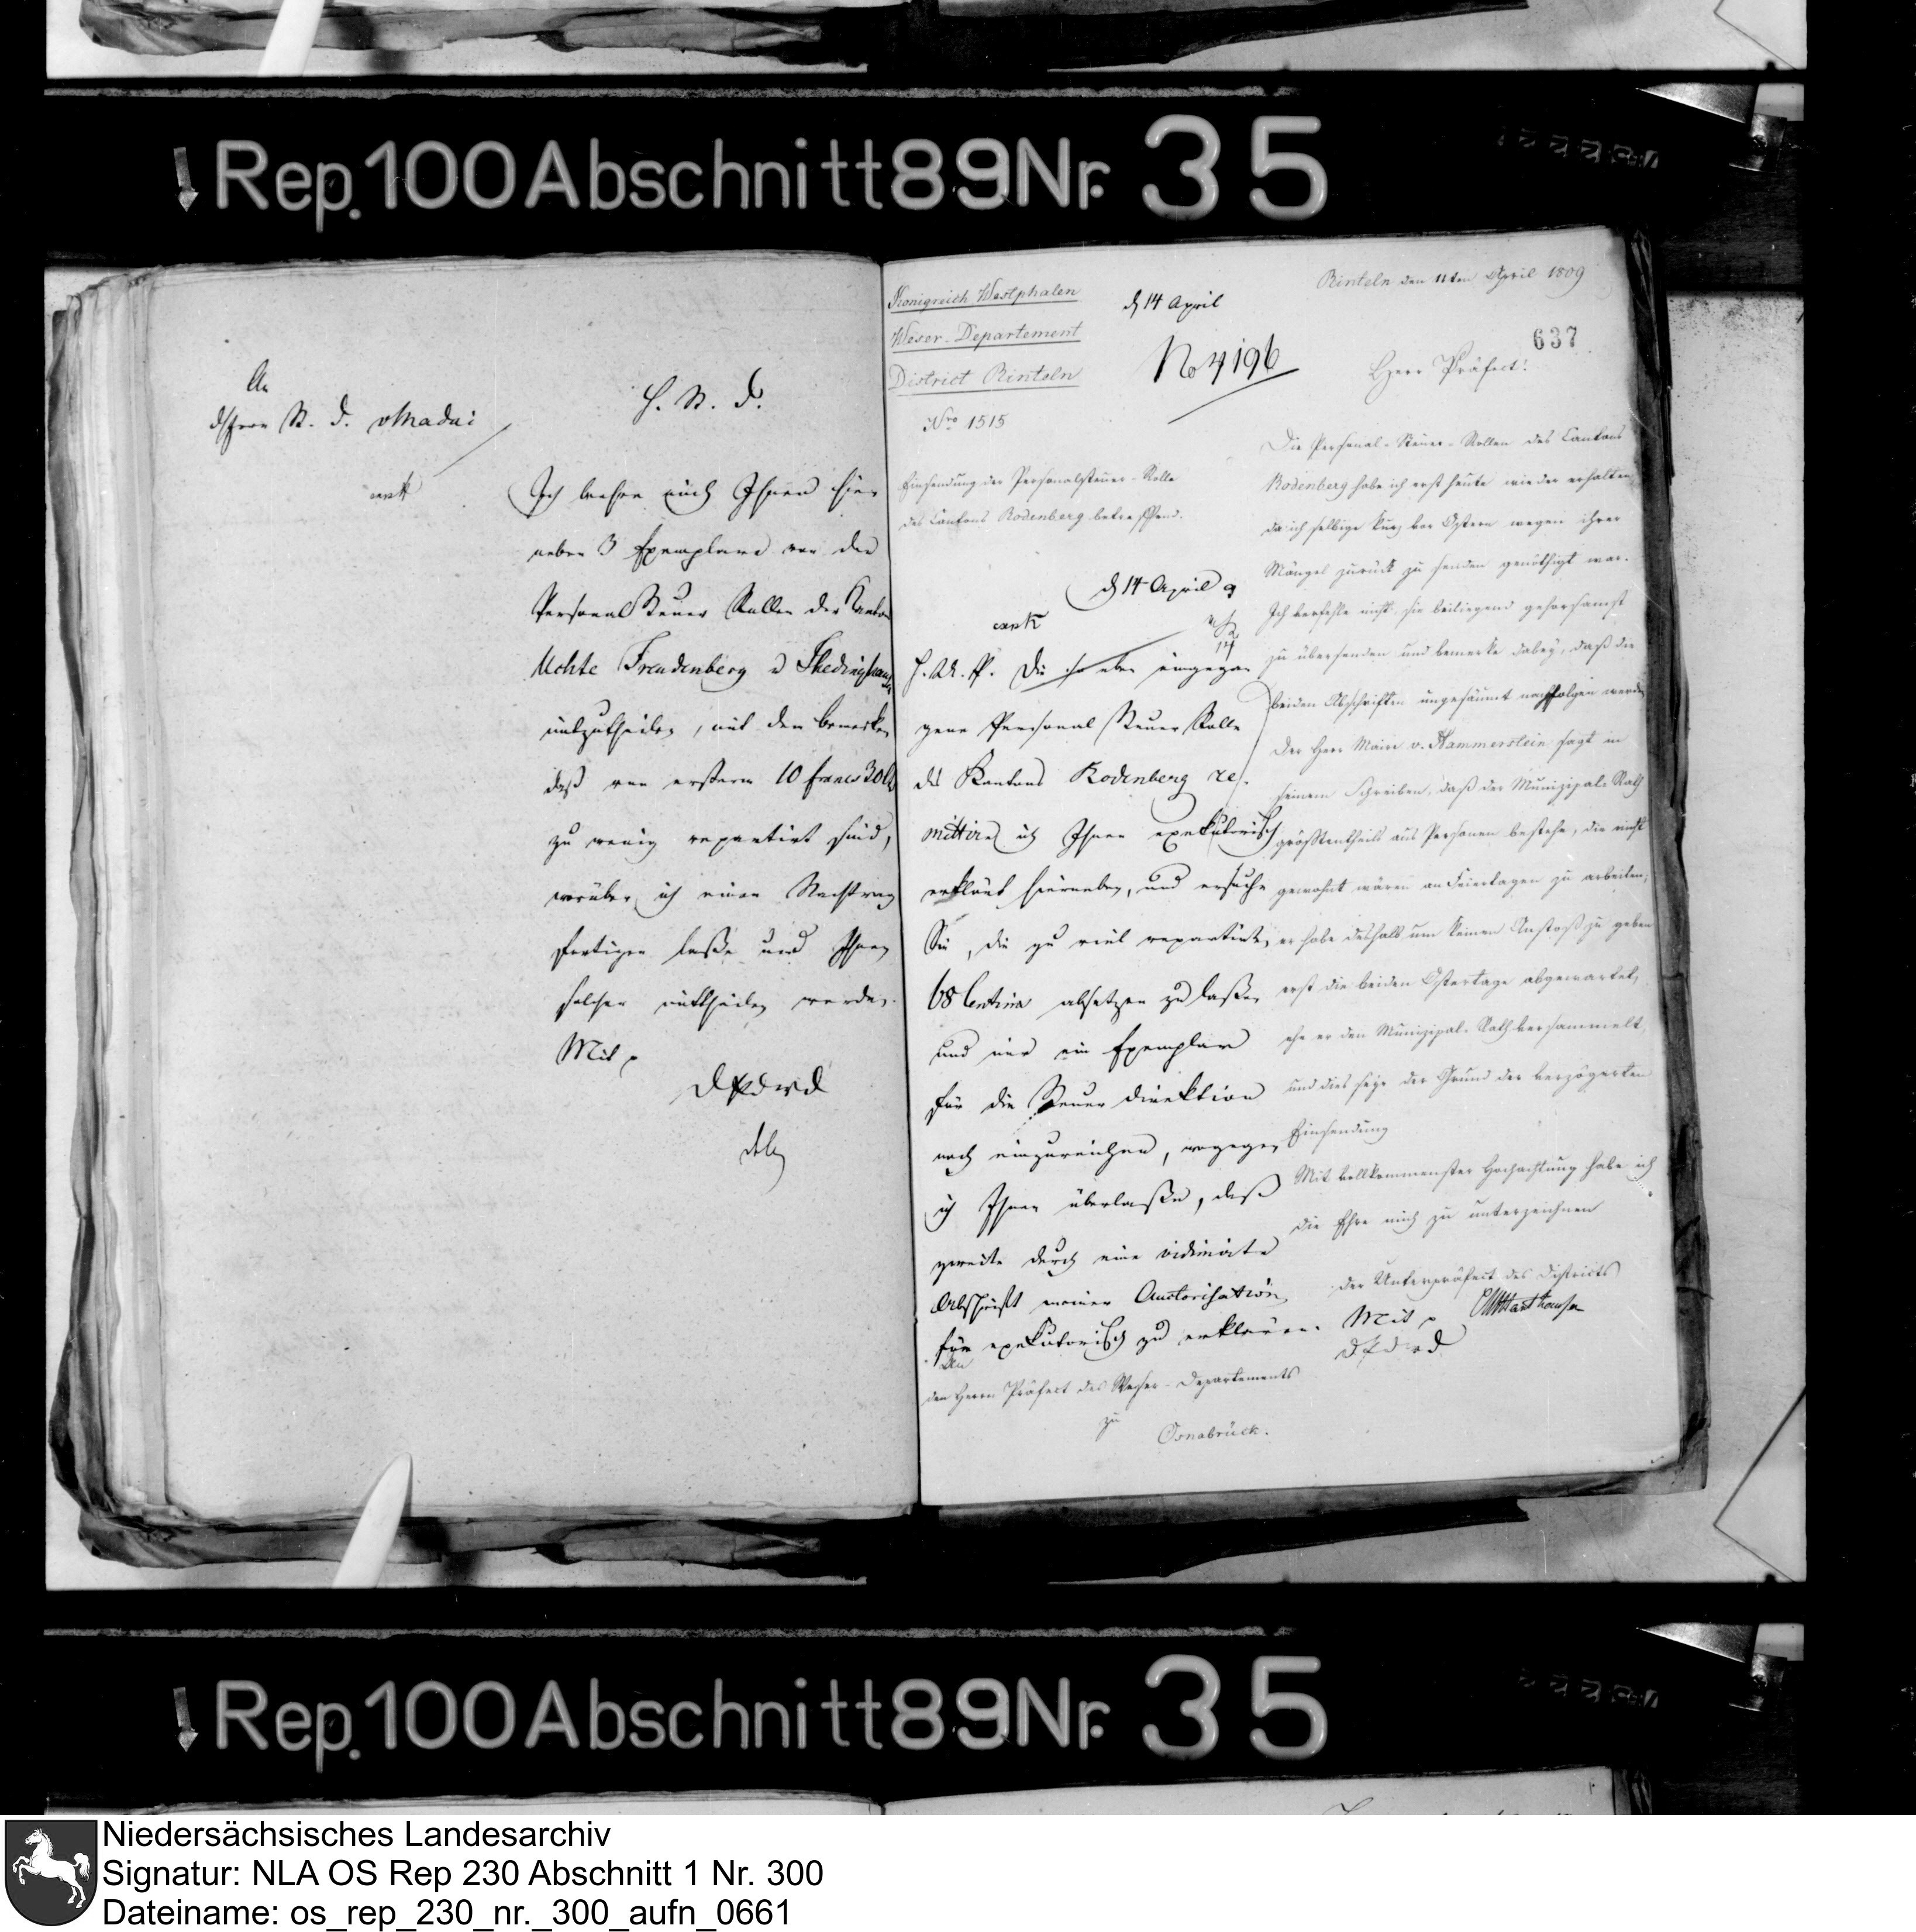 Rep. 100 Abschnitt 89 Nr. 35
An
d Herrn St. D. v Madai
H. St. D.
Ich beehre mich Ihnen hier
neben 3 Exemplare von den
Personal Steuer Rollen der Kantone
Uchte Freudenberg u
mitzutheilen, mit dem Bemerken
daß von ersterm 10 francs 30
zu wenig repartirt sind,
worüber ich einen Nachtrag
fertigen laße und Ihnen
solchen mittheilen werde.
Mit
D P d W D
Königreich Westphalen
Weser-Departement
District Rinteln
Nro 1515
Einsendung der Personalsteuer-Rolle
des Cantons Rodenberg betreffend.
d 14 April
No 4196
Rinteln den 11ten April 1809
637
Herr Präfect!
Die Personal-Steuer-Rollen des Cantons
Rodenberg habe ich erst heute wieder erhalten,
da ich selbige kurz vor Ostern wegen ihrer
Mängel zurück zu senden genöthigt war.
Ich verfehle nicht, sie beiliegend gehorsamst
zu übersenden und bemerke dabey, daß die
beiden Abschriften ungesäumt nachfolgen werden
Der Herr Maire v. Hammerstein sagt in
seinem Schreiben, daß der Munizipal-Rath
größtentheils aus Personen bestehe, die nicht
gewohnt wären an Feiertagen zu arbeiten;
er habe deshalb um keinen Anstoß zu geben
erst die beiden Ostertage abgewartet,
ehe er den Munizipal-Rath versammelt,
und dies seye der Grund der verzögerten
Einsendung
Mit vollkommenster Hochachtung habe ich
die Ehre mich zu unterzeichnen
der Unterpräfect des Districts
d 14 April 9
H. U. P. Die so eben eingegan
gene Personal Steuer Rolle
des Kantons Rodenberg re
mittire ich Ihnen exekutorisch
erklärt hierneben, und ersuche
Sie, die zu viel repartirten
68 Centimen absetzen zu laßen
und mir ein Exemplar
für die Steuer direktion
noch einzureichen, wogegen
ich Ihnen überlaße, daß
zweite durch eine vidimirte
Abschrift meiner Auctorisation
für exekutorisch zu erklären.
Mit
D P d W D
An
den Herrn Präfect des Weser-Departements
zu
Osnabrück.
Rep. 100 Abschnitt 89 Nr. 35
Niedersächsisches Landesarchiv
Signatur: NLA OS Rep 230 Abschnitt 1 Nr. 300
Dateiname: os_rep_230_nr._300_aufn_0661